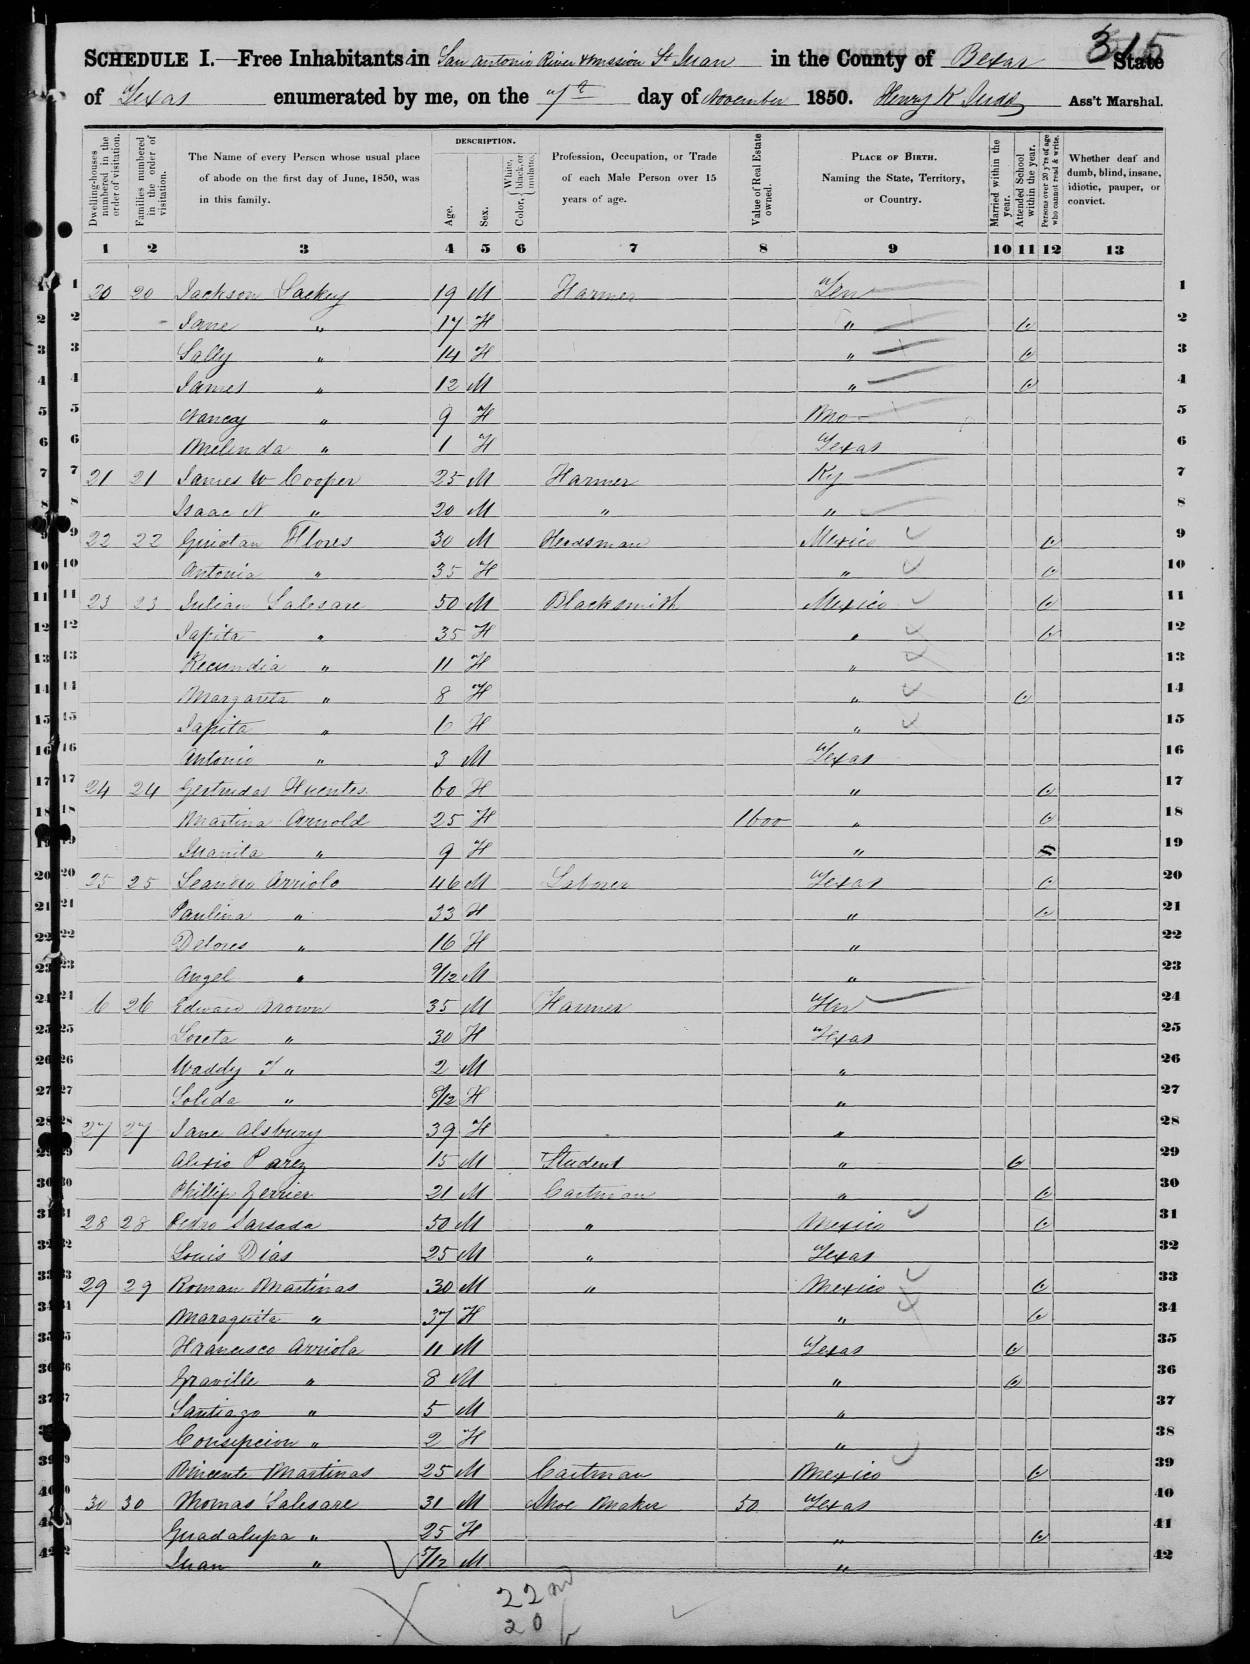 315
SCHEDULE I.—Free Inhabitants in San Antonio River & Mission St Juan in the County of Bexar State
of Texas enumerated by me, on the 7th day of November 1850. Henry K Judd Ass't Marshal.
Dwelling-houses numbered in the order of visitation.
Families numbered in the order of visitation.
The Name of every Person whose usual place of abode on the first day of June, 1850, was in this family.
DESCRIPTION.
Age.
Sex.
Color, White, black, or mulatto.
Profession, Occupation, or Trade of each Male Person over 15 years of age.
Value of Real Estate owned.
PLACE OF BIRTH. Naming the State, Territory, or Country.
Married within the year.
Attended School within the year.
Persons over 20 y'rs of age who cannot read & write.
Whether deaf and dumb, blind, insane, idiotic, pauper, or convict.
1 2 3 4 5 6 7 8 9 10 11 12 13
1 20 20 Jackson Lackey 19 M Farmer Ten 1
2 Jane " 17 F " 2
3 Sally " 14 F " 3
4 James " 12 M " 4
5 Nancy " 9 F Mo 5
6 Melinda " 1 F Texas 6
7 21 21 James W Cooper 25 M Farmer Ky 7
8 Isaac N " 20 M " " 8
9 22 22 Flores 30 M Herdsman Mexico 9
10 Antonia " 35 F " 10
11 23 23 Julian Salesare 50 M Blacksmith Mexico 11
12 Japita " 35 F " 12
13 Recundia " 11 F " 13
14 Margareta " 8 F " 14
15 Japita " 6 F " 15
16 Antonio " 3 M Texas 16
17 24 24 Gertrudas Fuentes 60 F " 17
18 Martina Arnold 25 F 1600 " 18
19 Juanita " 9 F " 19
20 25 25 Leandro Arriolo 46 M Laborer Texas 20
21 Paulina " 33 F " 21
22 Delores " 16 F " 22
23 Angel " 9/12 M " 23
24 6 26 Edward Brown 35 M Farmer Ten 24
25 Loreta " 30 F Texas 25
26 Waddy T " 2 M " 26
27 Soleda " 8/12 F " 27
28 27 27 Jane Alsbury 39 F " 28
29 Alexio Parez 15 M Student " 29
30 Phillip Zerrier 21 M Cartman " 30
31 28 28 Pedro Sarsada 50 M " Mexico 31
32 Louis Dias 25 M " Texas 32
33 29 29 Roman Martinas 30 M " Mexico 33
34 Maraquita " 37 F " 34
35 Francisco Arriola 11 M Texas 35
36 Graville " 8 M " 36
37 Santiago " 5 M " 37
38 Consepcion " 2 F " 38
39 Vincente Martinas 25 M Cartman Mexico 39
40 30 30 Thomas Salesare 31 M Shoe Maker 50 Texas 40
41 Guadalupa " 25 F " 41
42 Juan " 5/12 M " 42
22 M
20 f